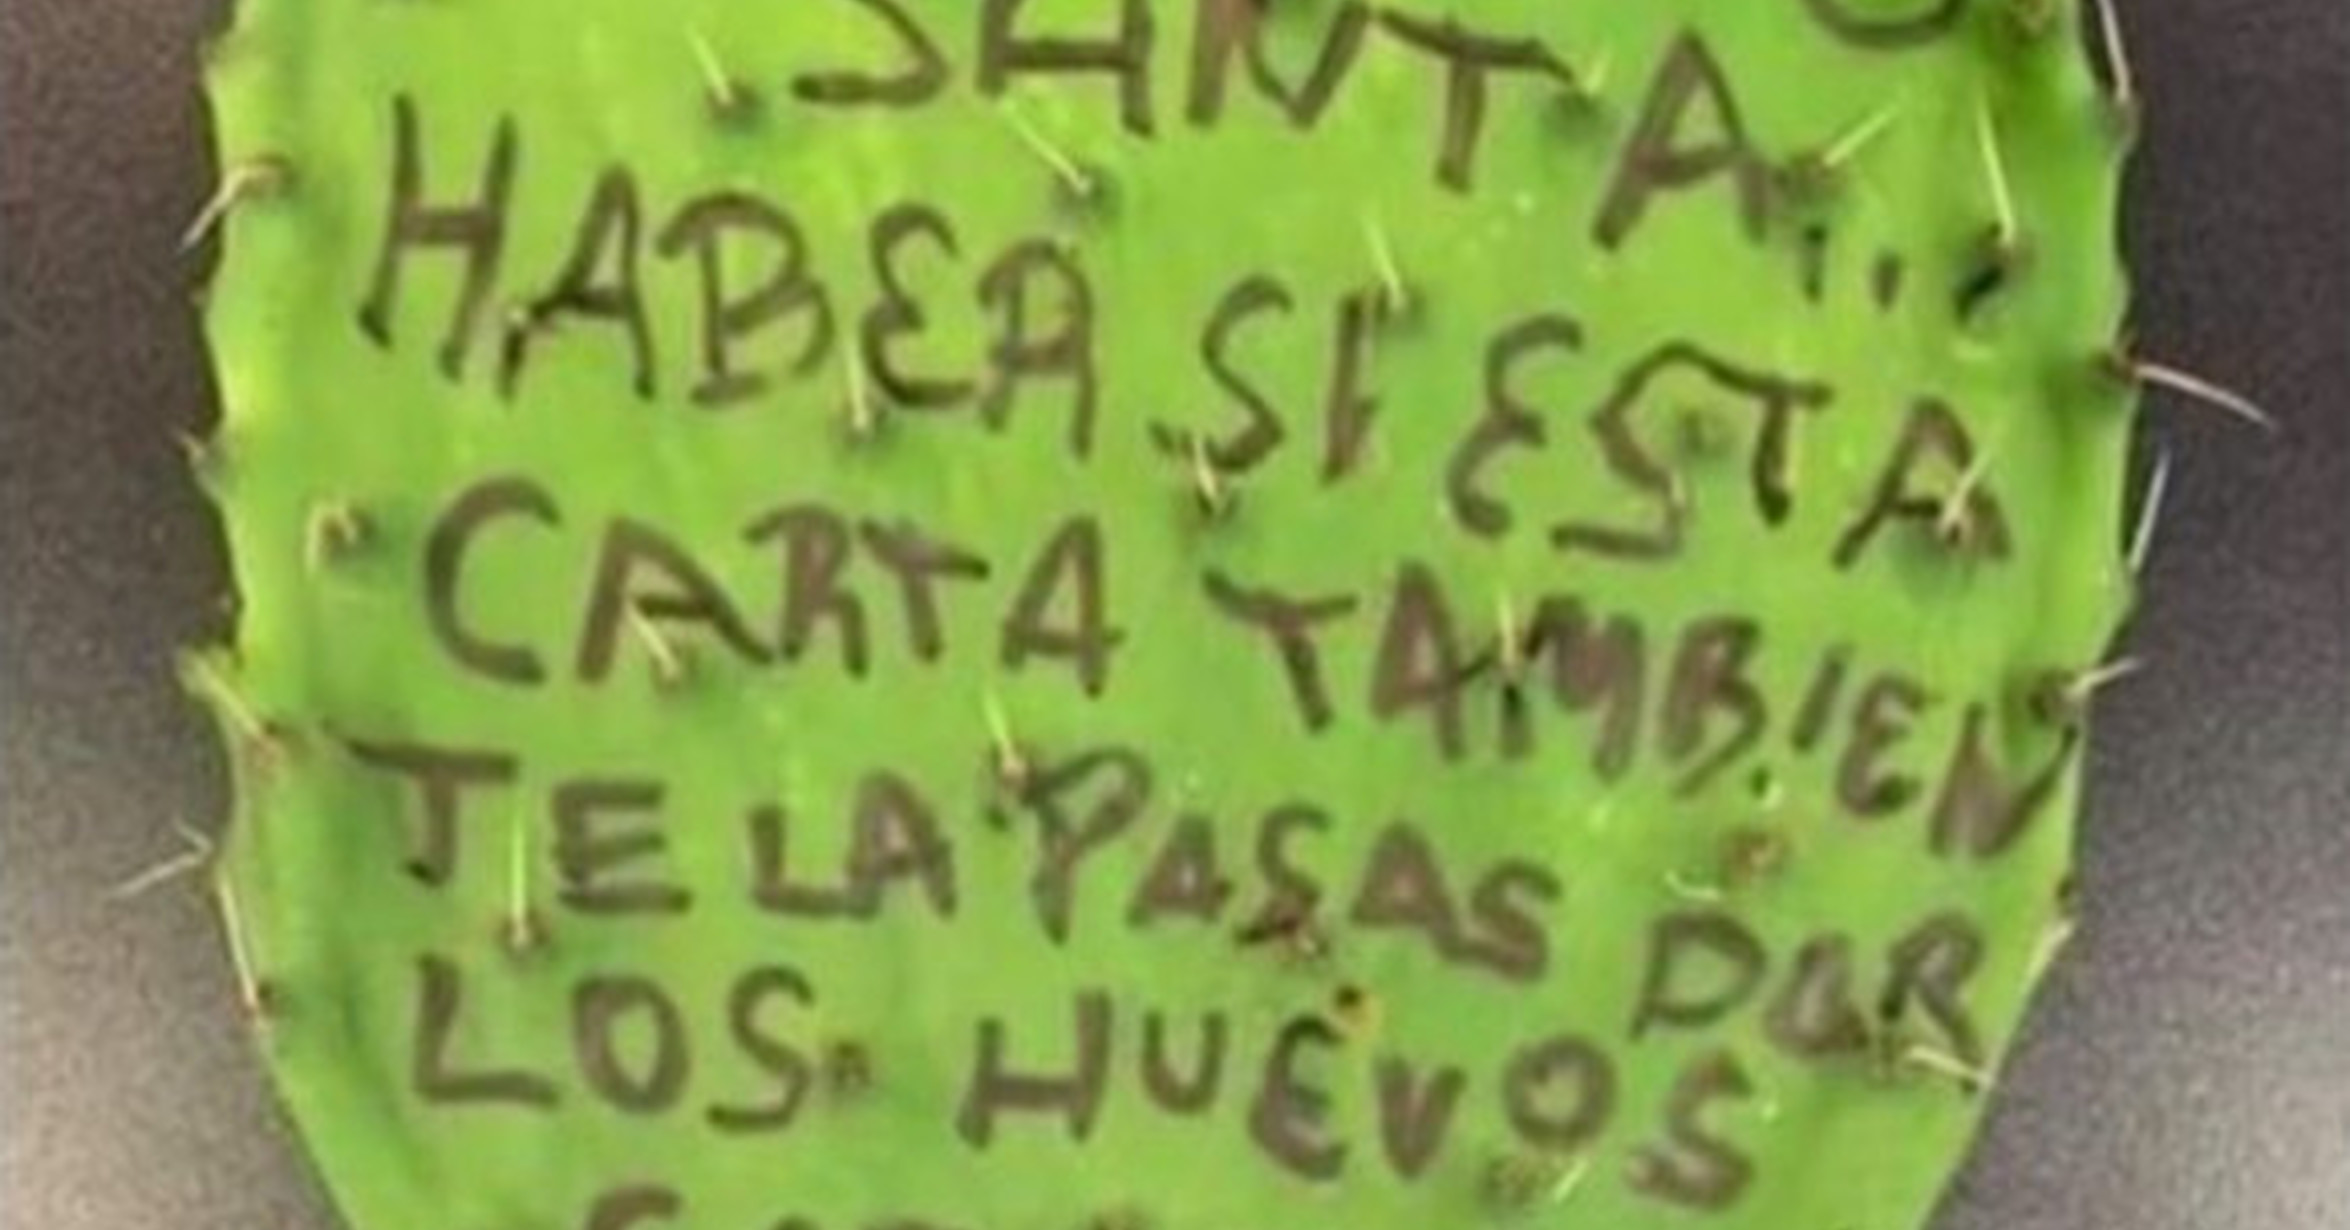 SANTA,
HABER SI ESTA
CARTA TAMBIEN
TE LA PASAS POR
LOS HUEVOS